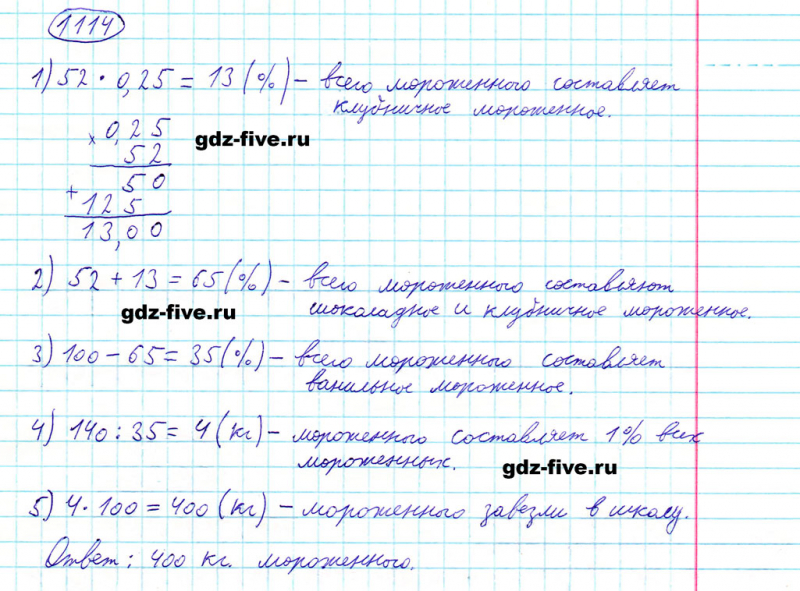 1114
1) 52 · 0,25 = 13 (%) – всего мороженного составляет
клубничное мороженное.
× 0,25
52
gdz-five.ru
+ 50
125
13,00
2) 52 + 13 = 65 (%) – всего мороженного составляют
шоколадное и клубничное мороженное.
gdz-five.ru
3) 100 – 65 = 35 (%) – всего мороженного составляет
ванильное мороженное.
4) 140 : 35 = 4 (кг) – мороженного составляет 1% всех
мороженных.
gdz-five.ru
5) 4 · 100 = 400 (кг) – мороженного завезли в школу.
Ответ: 400 кг. мороженного.